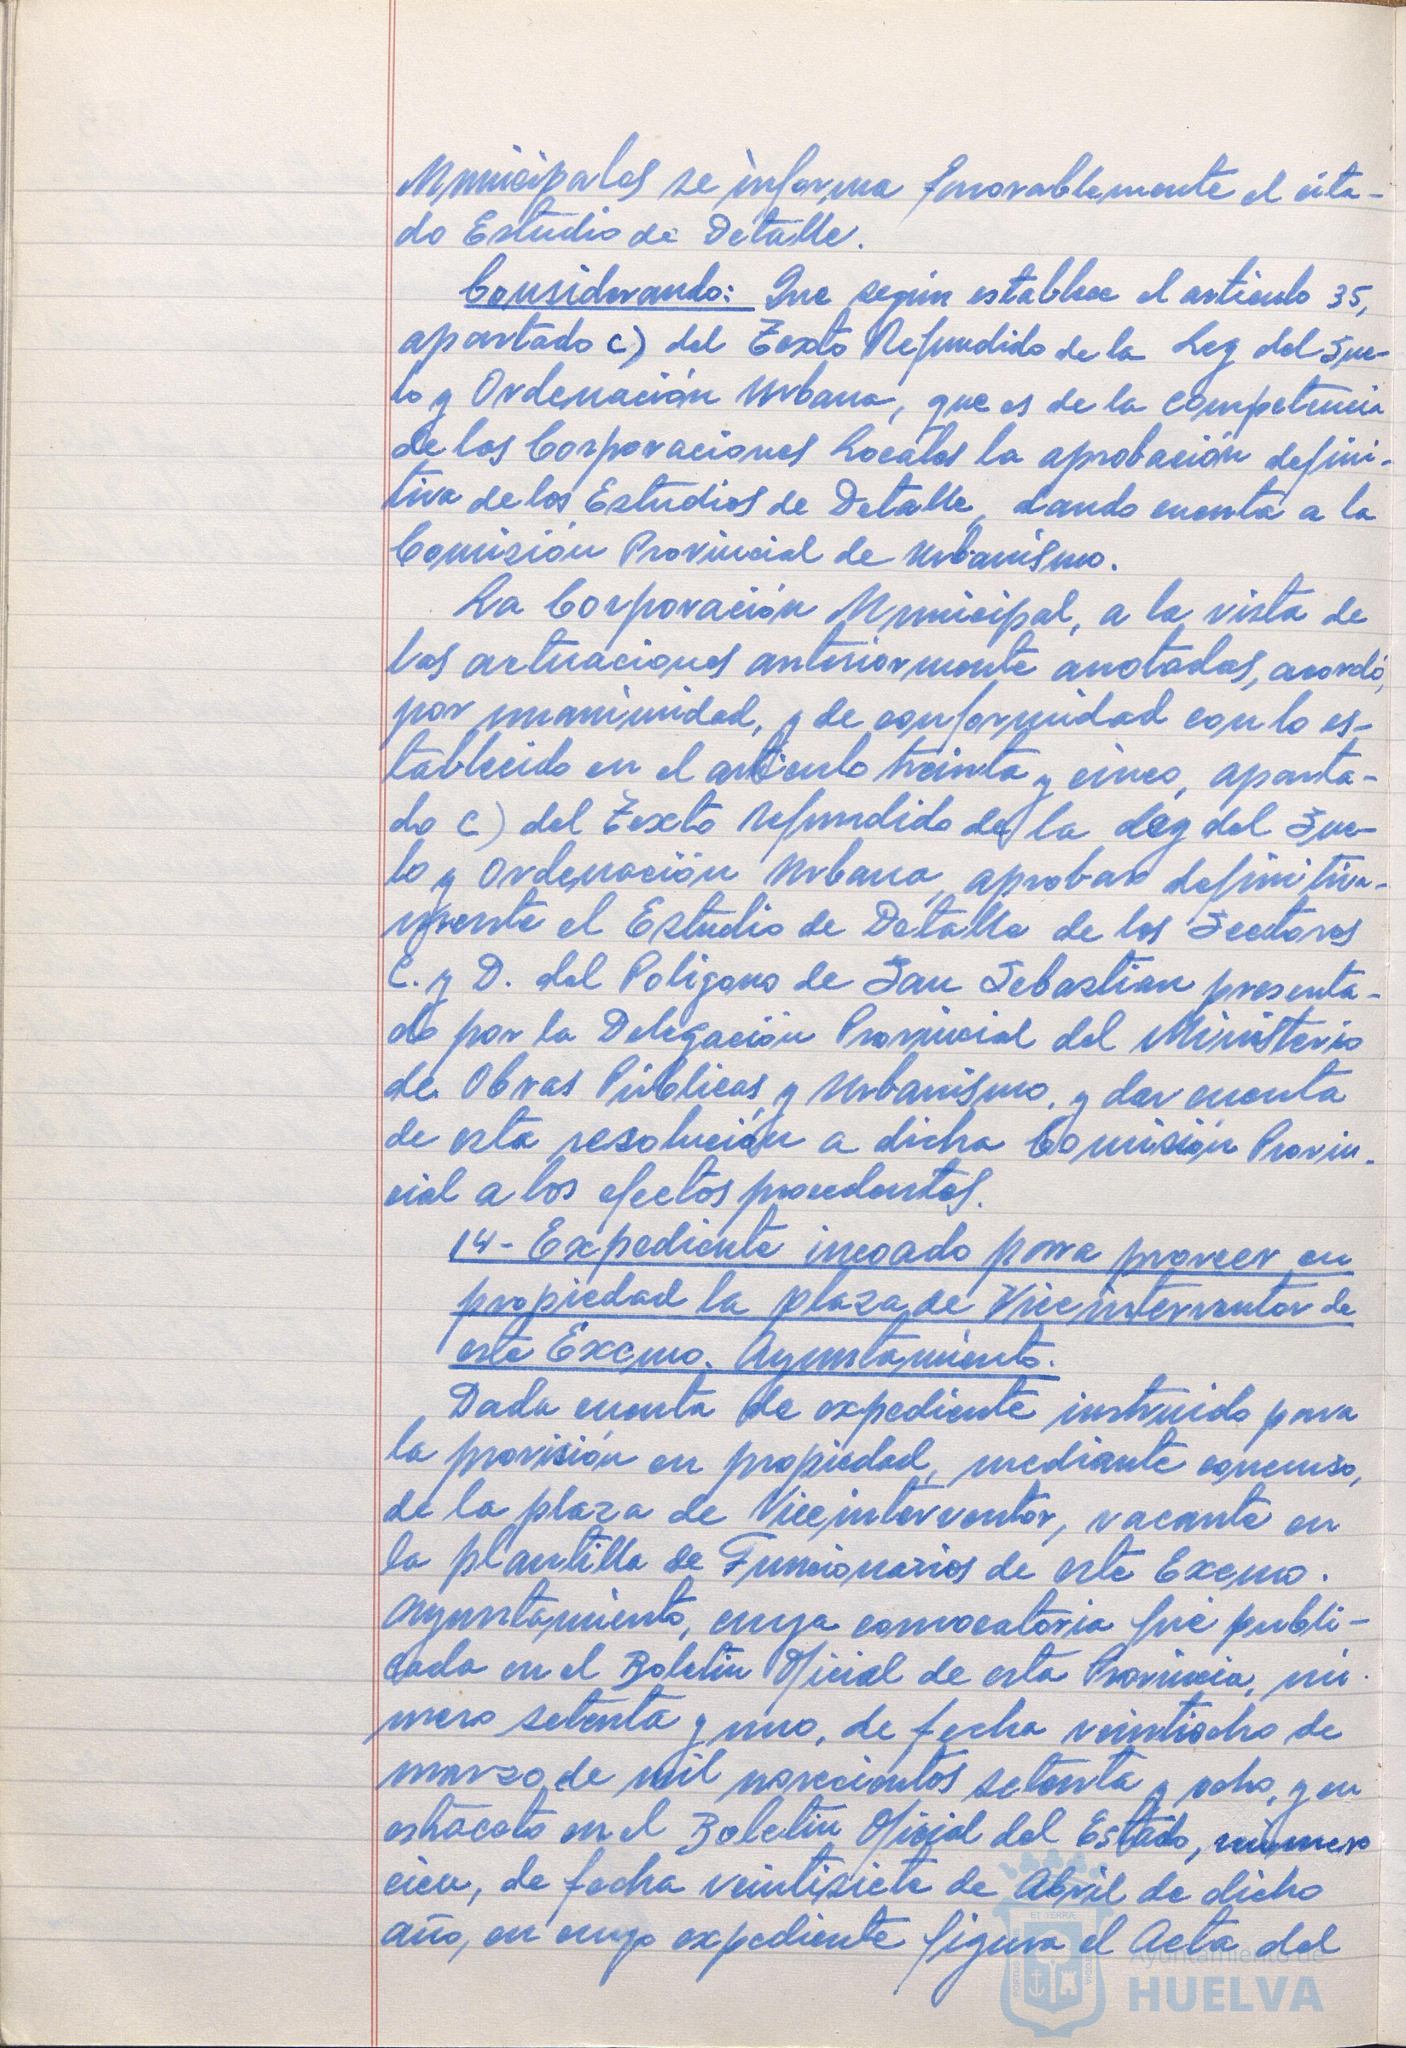 Municipales se informa favorablemente el cita-
do Estudio de Detalle.
Considerando: Que según establece el articulo 35,
apartado c) del Texto Refundido de la Ley del Sue-
lo y Ordenación Urbana, que es de la competencia
de las Corporaciones Locales la aprobación defini-
tiva de los Estudios de Detalle, dando cuenta a la
Comisión Provincial de Urbanismo.
La Corporación Municipal, a la vista de
las actuaciones anteriormente anotadas, acordó,
por unanimidad, y de conformidad con lo es-
tablecido en el articulo treinta y cinco, aparta-
do c) del Texto Refundido de la Ley del Sue-
lo y Ordenación Urbana, aprobar definitiva-
mente el Estudio de Detalle de los Sectores
C. y D. del Poligono de San Sebastian presenta-
do por la Delegación Provincial del Ministerio
de Obras Públicas y Urbanismo, y dar cuenta
de esta resolución a dicha Comisión Provin-
cial a los efectos procedentes.
14- Expediente incoado para proveer en
propiedad la plaza de Viceinterventor de
este Excmo. Ayuntamiento.
Dada cuenta de expediente instruido para
la provisión en propiedad, mediante concurso,
de la plaza de Viceinterventor, vacante en
la plantilla de Funcionarios de este Excmo.
Ayuntamiento, cuya convocatoria fué publi-
cada en el Boletin Oficial de esta Provincia, nú-
mero setenta y uno, de fecha veintiocho de
marzo de mil novecientos setenta y ocho, y en
extracto en el Boletin Oficial del Estado, número
cien, de fecha veintisiete de Abril de dicho
año, en cuyo expediente figura el Acta del
Ayuntamiento de
HUELVA